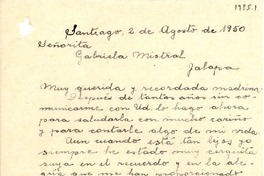 1985.1
Santiago, 2 de Agosto de 1950
Señorita
Gabriela Mistral
Jalapa
Muy querida y recordada madrina:
Después de tantos años sin co-
municarme con Ud. lo hago ahora
para saludarla con mucho cariño
y para contarle algo de mi vida.
Aun cuando está tan lejos yo
siempre he estado muy cerquita
suyo en el recuerdo y en la ale-
gría que me han proporcionado